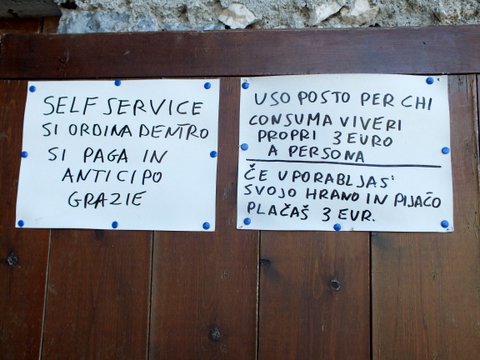 SELF SERVICE
SI ORDINA DENTRO
SI PAGA IN
ANTICIPO
GRAZIE
USO POSTO PER CHI
CONSUMA VIVERI
PROPRI 3 EURO
A PERSONA
ČE UPORABLJAŠ
SVOJO HRANO IN PIJAČO
PLAČAŠ 3 EUR.